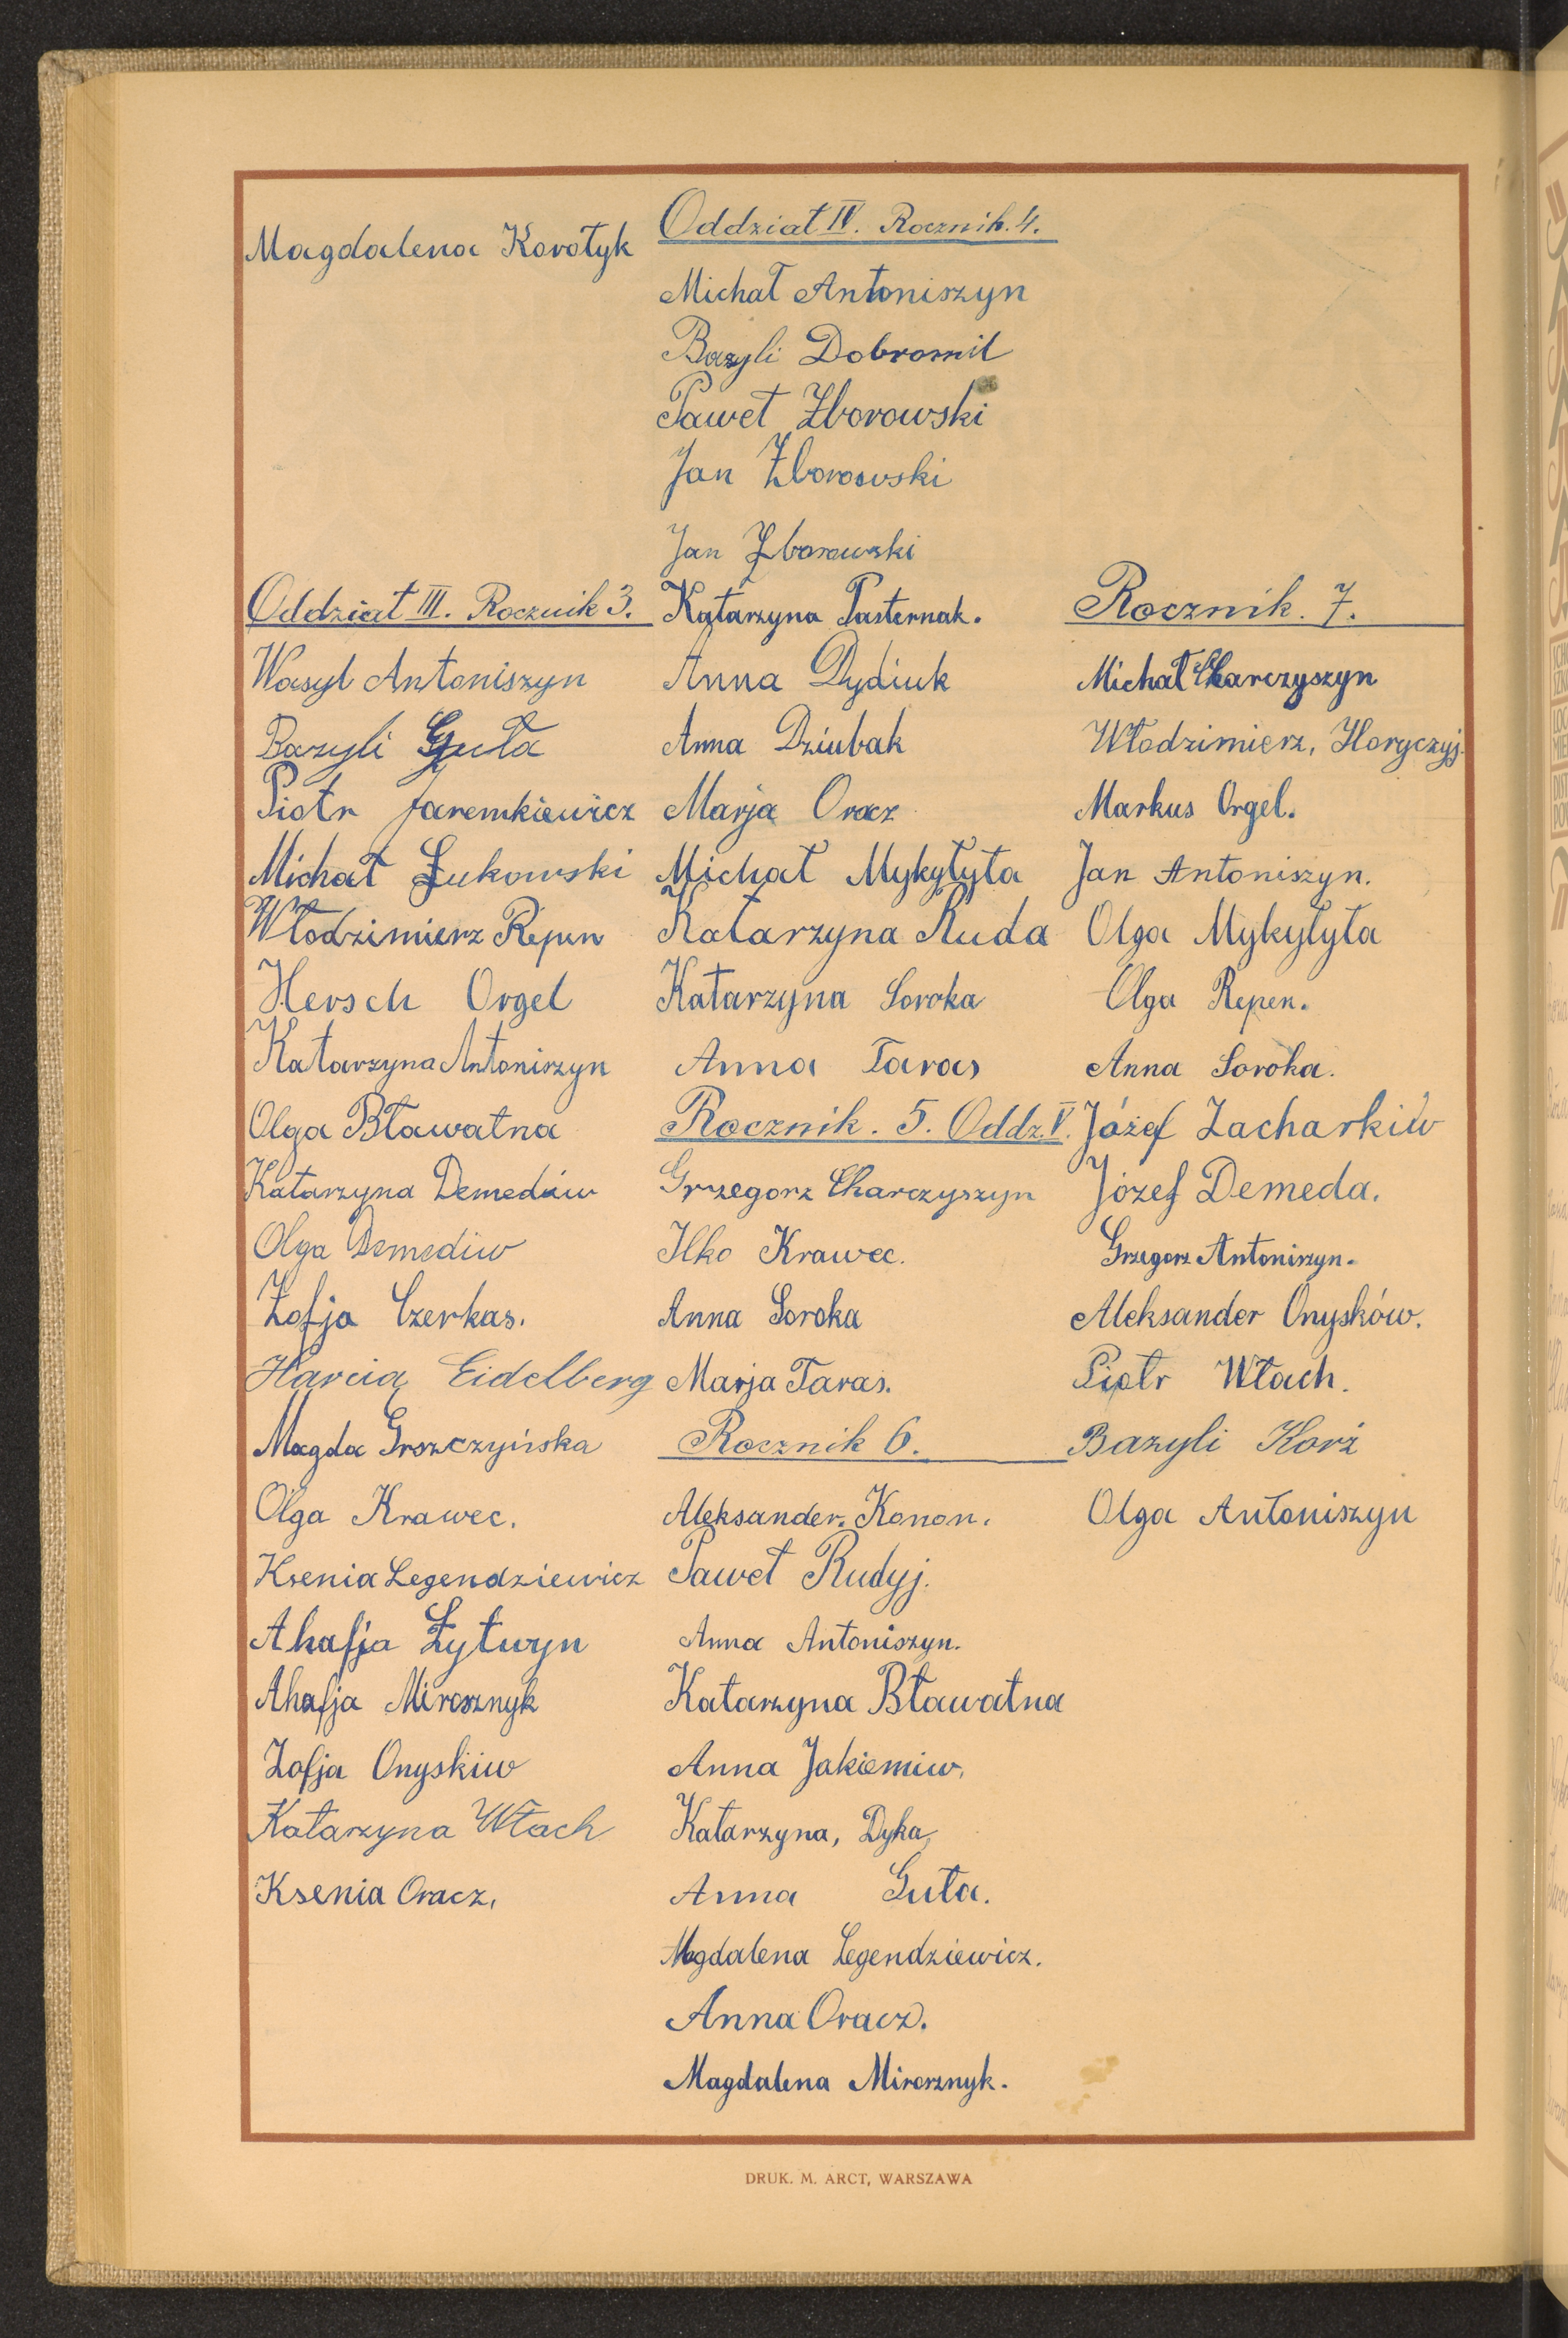 Magdalena Korołyk
Oddział III. Rocznik 3.
Wasyl Antoniszyn
Bazyli Guła
Piotr Jaremkiewicz
Michał Łukowski
Włodzimierz Repen
Hersch Orgel
Katarzyna Antoniszyn
Olga Bławatna
Katarzyna Demediw
Olga Demediw
Zofja Czerkas.
Eidelberg
Magda Groszczyńska
Olga Krawec.
Ksenia Legendziewicz
Ahafja Łytwyn
Ahafja Mirosznyk
Zofja Onyskiw
Katarzyna Włach
Ksenia Oracz.
Oddział IV. Rocznik. 4.
Michał Antoniszyn
Bazyli Dobromil
Paweł Zborowski
Jan Zborowski
Jan Zborowski
Katarzyna Pasternak.
Anna Dydiuk
Anna Dziubak
Marja Oracz
Michał Mykytyta
Katarzyna Ruda
Katarzyna Soroka
Anna Taras
Rocznik. 5. Oddz. V.
Grzegorz Charczyszyn
Ilko Krawec.
Anna Soroka
Marja Taras.
Rocznik 6.
Aleksander. Konon.
Paweł Rudyj.
Anna Antoniszyn.
Katarzyna Bławatna
Anna Jakiemiw.
Katarzyna, Dyka,
Anna Guła.
Magdalena Legendziewicz.
Anna Oracz.
Magdalena Mirosznyk.
Rocznik. 7.
Michał Charczyszyn
Włodzimierz, Horyczyj.
Markus Orgel.
Jan Antoniszyn.
Olga Mykytyta
Olga Repen.
Anna Soroka.
Józef Zacharkiw
Józef Demeda.
Grzegorz Antoniszyn.
Aleksander Onysków.
Piotr Włach.
Bazyli Korż
Olga Antoniszyn
DRUK. M. ARCT, WARSZAWA